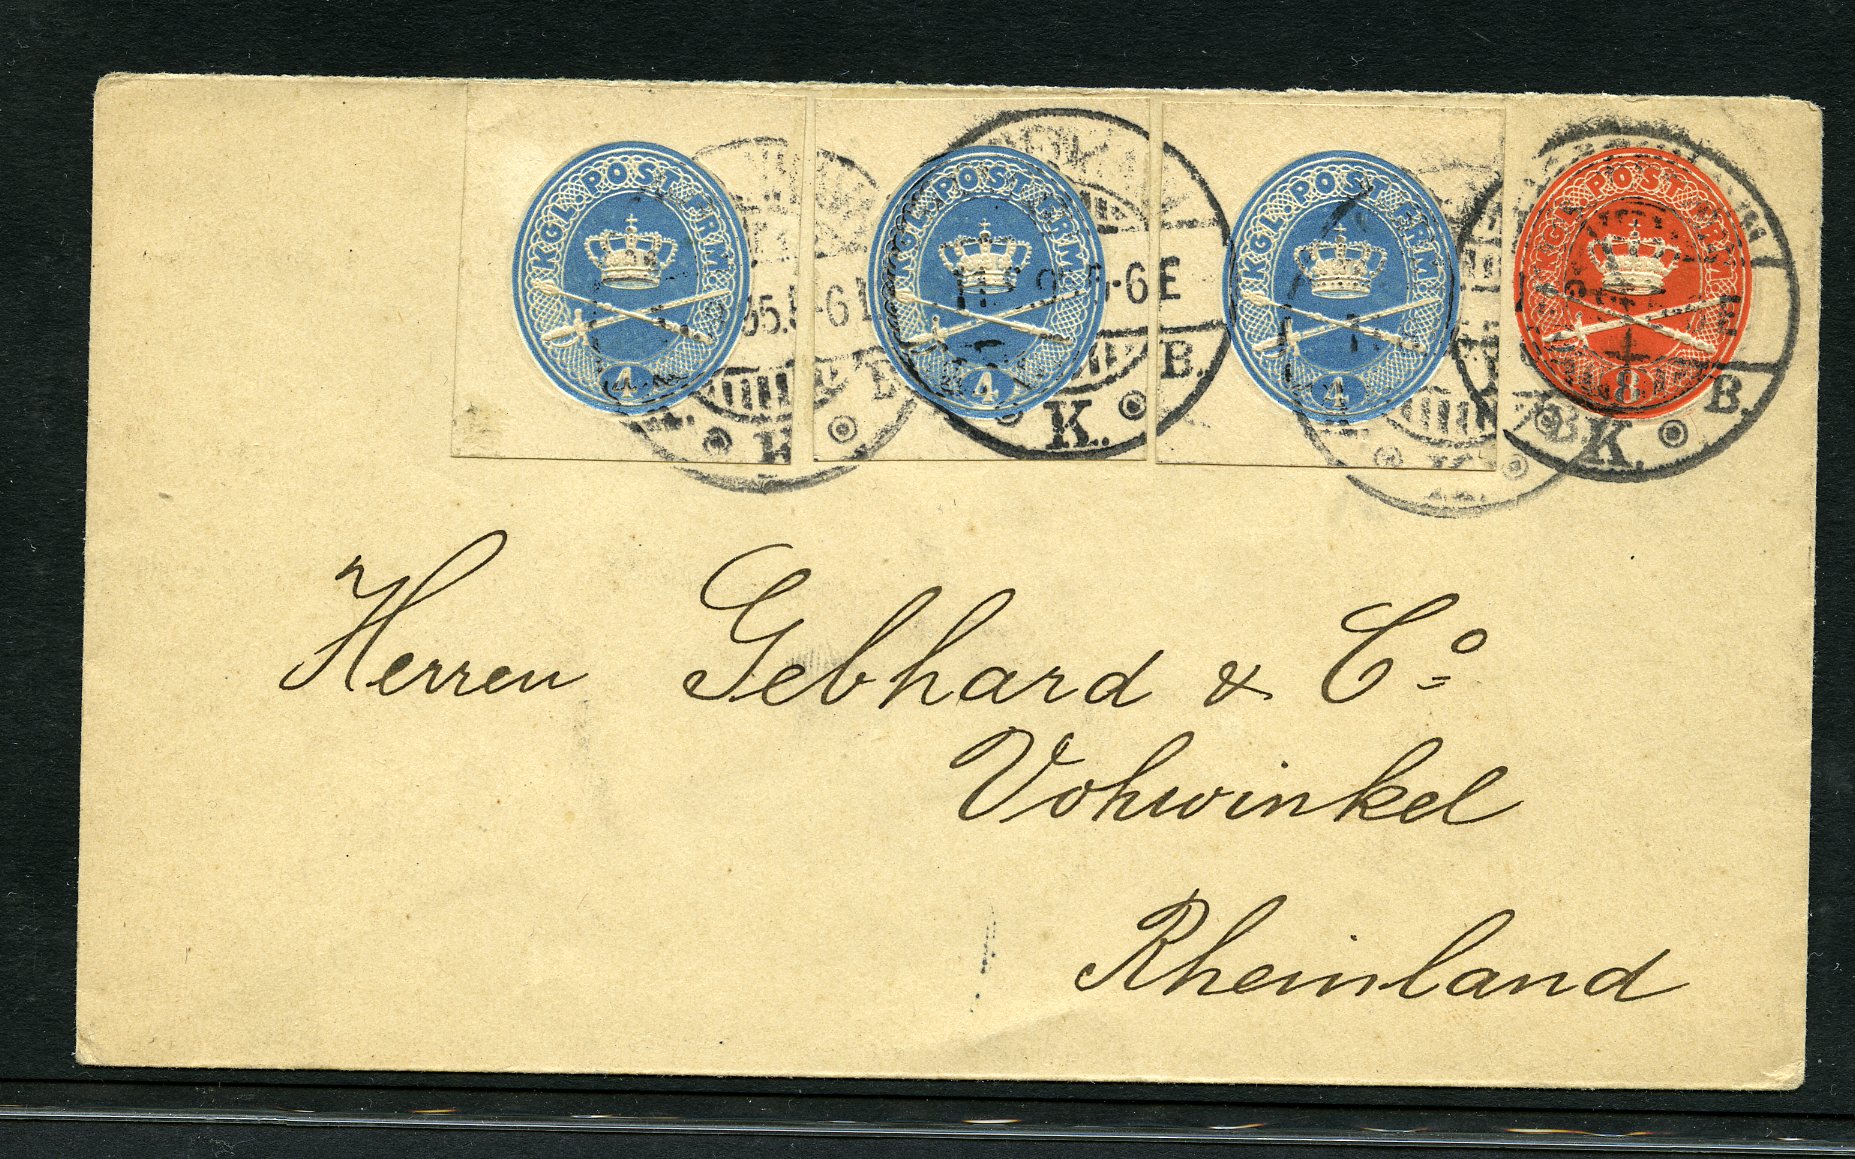 KGL. POST FRM. 4
KGL. POST FRM. 4
KGL. POST FRM. 4
KGL. POST FRM. 8
5-6E
K.
B.
K.
B.
Herren Gebhard & Cº
Vohwinkel
Rheinland